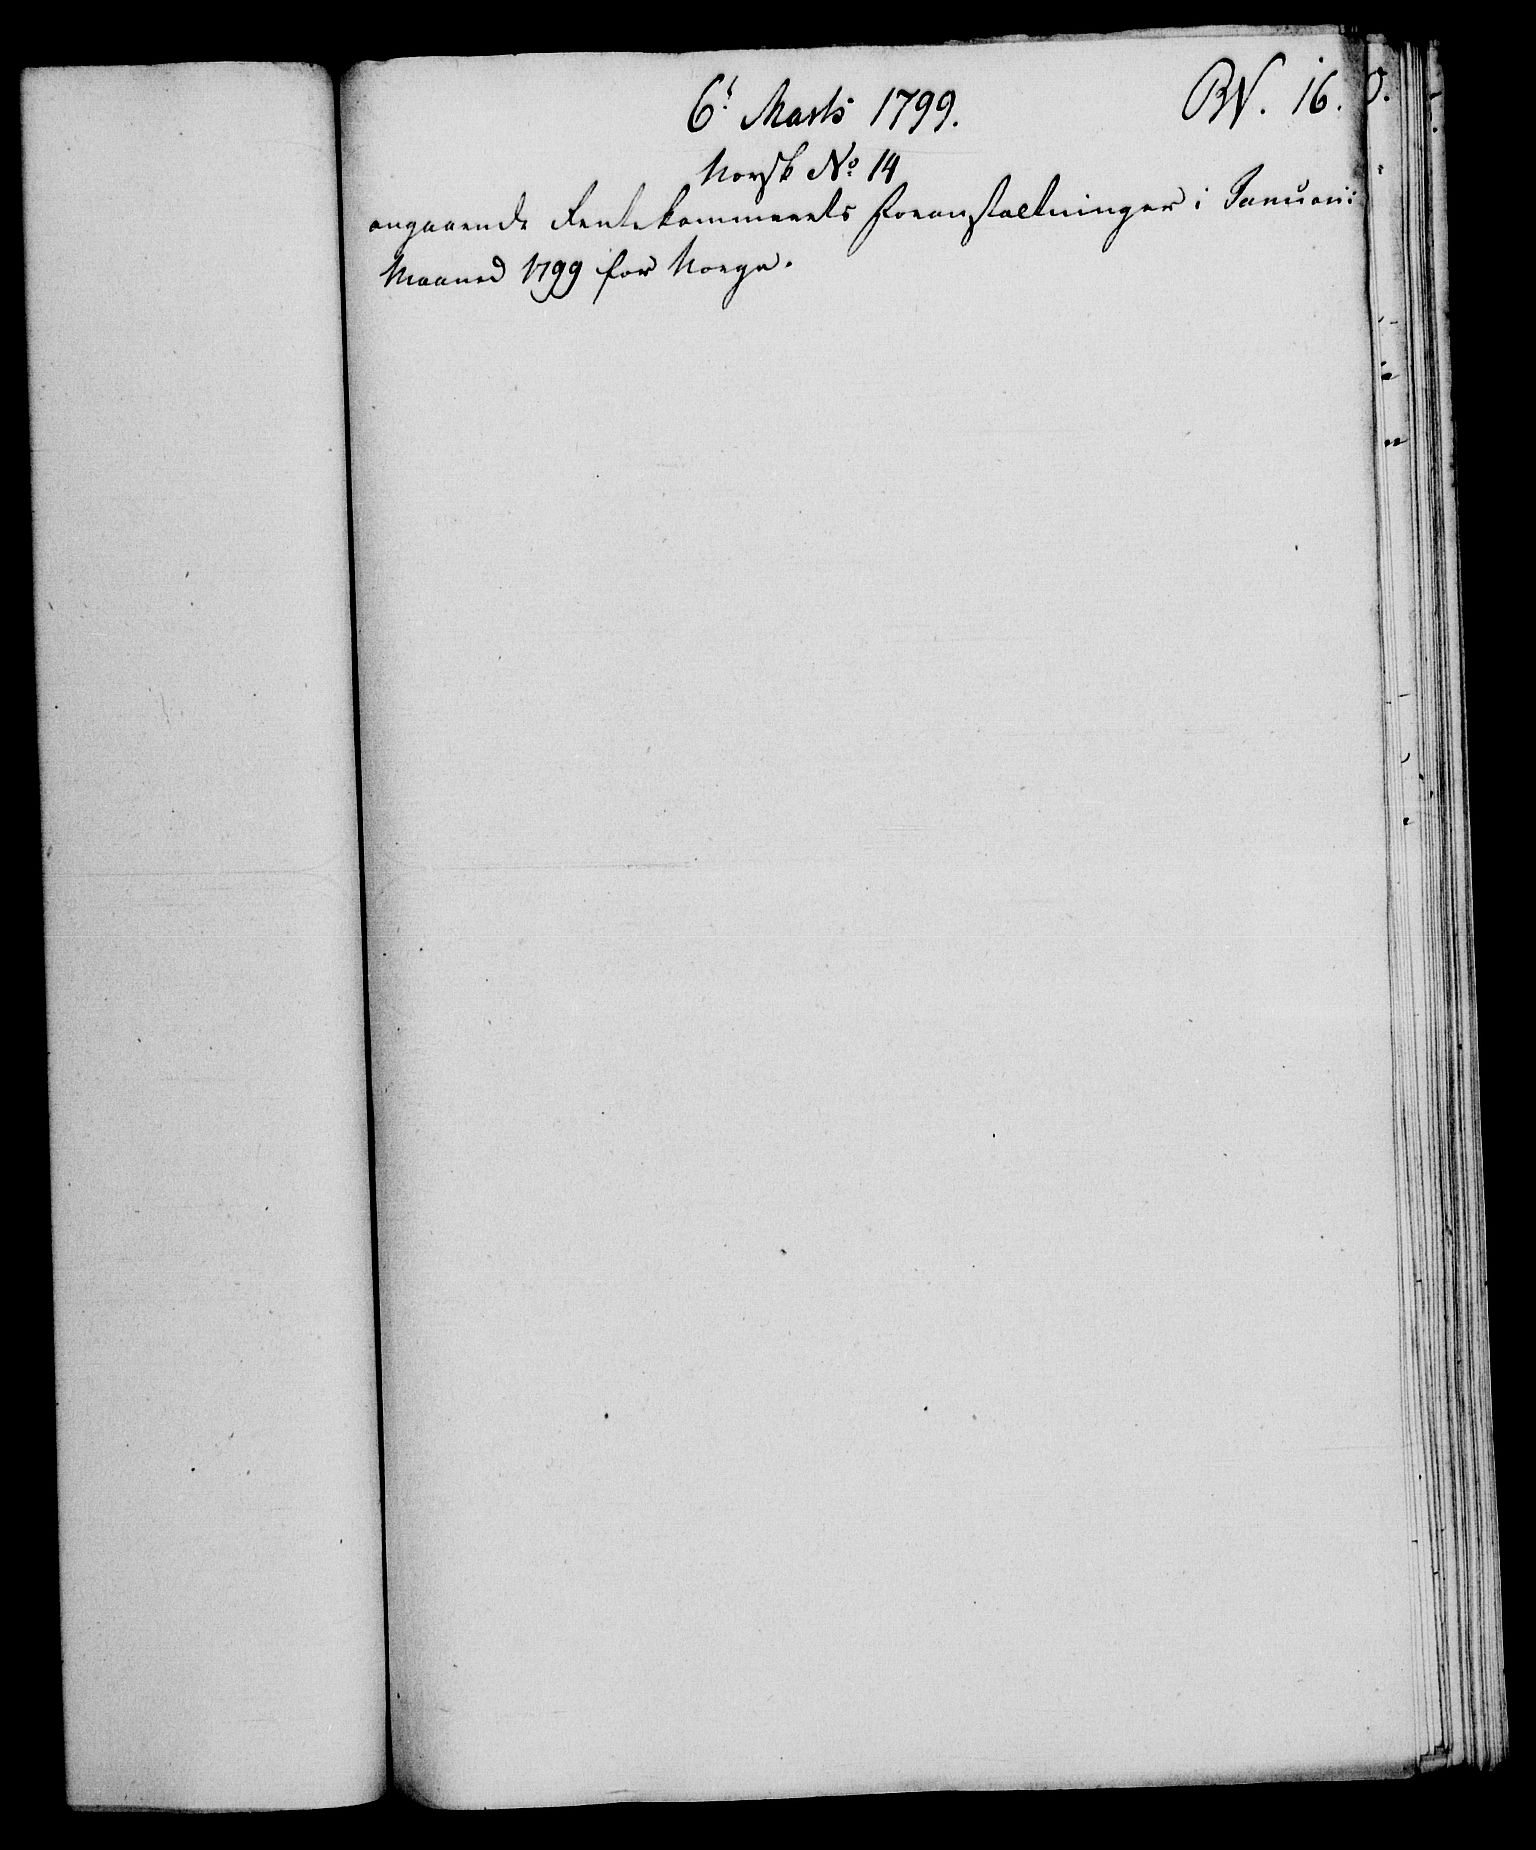 6t Marts 1799. RN. 16.
Norsk No 14
angaaende Rentekammerets Foranstaltninger i Januarii
Maaned 1799 for Norge.